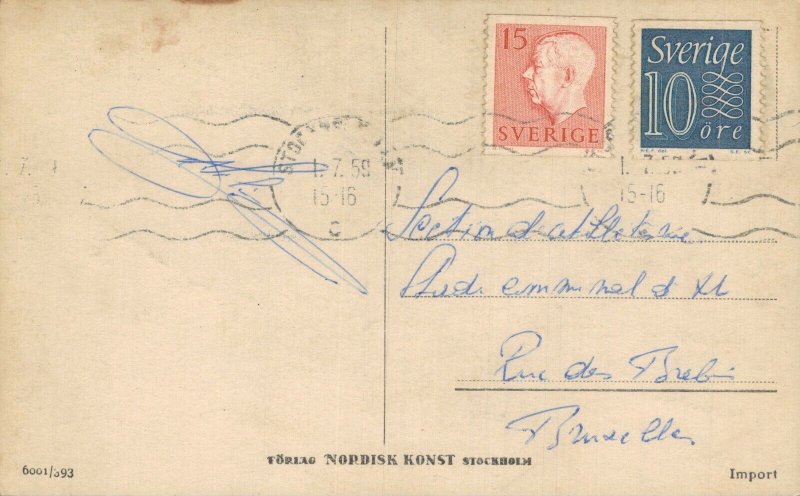 15
SVERIGE
Sverige
10
öre
1. 7. 59
15-16
C
1. 7. 59
15-16
Section de athlétisme
Stade communal d'Xl
Rue des Brebis
Bruxelles
TÖRLAG NORDISK KONST STOCKHOLM
6001/393
Import